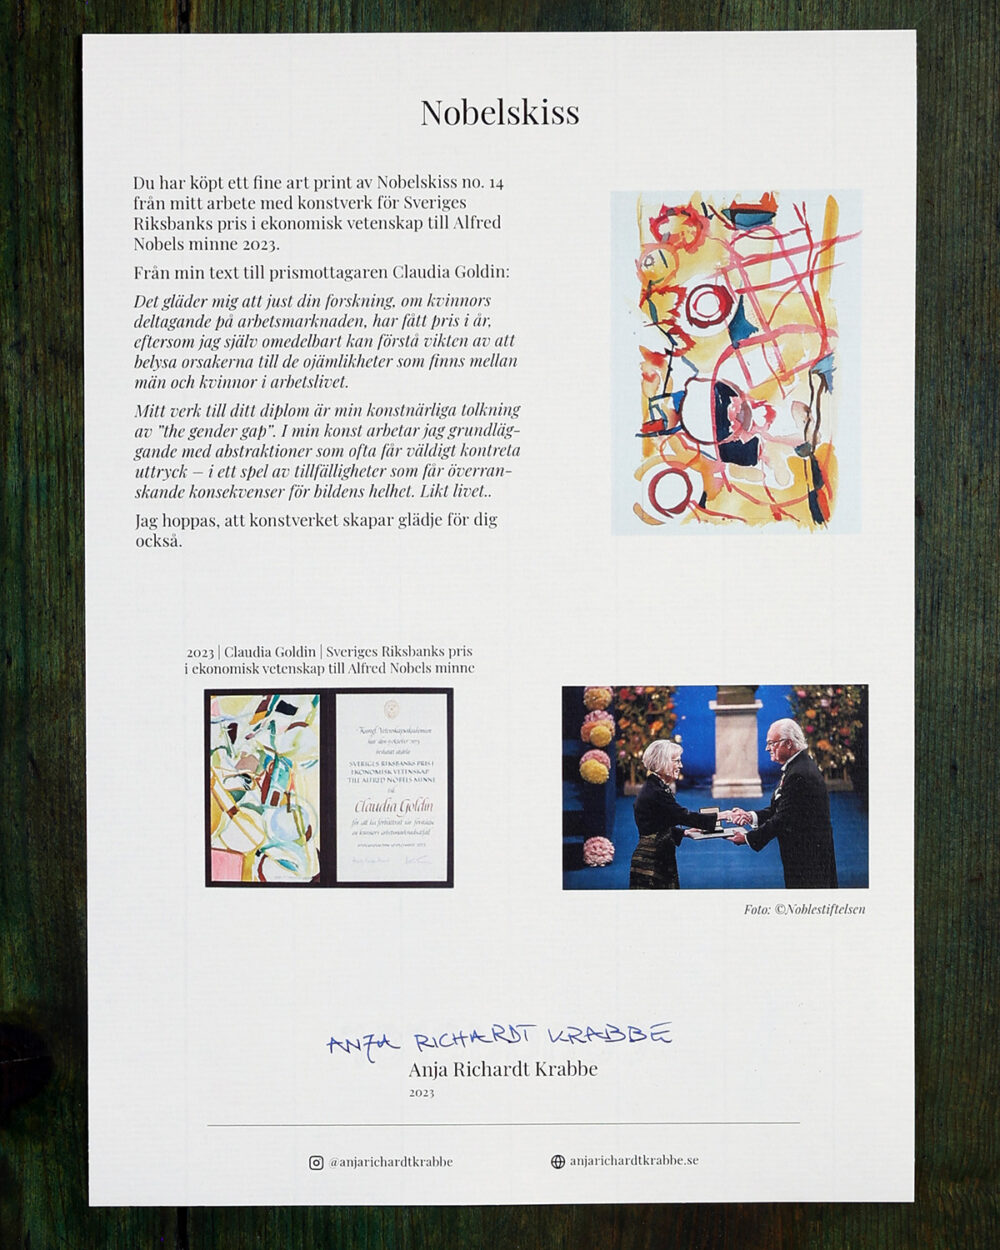 Nobelskiss
Du har köpt ett fine art print av Nobelskiss no. 14
från mitt arbete med konstverk för Sveriges
Riksbanks pris i ekonomisk vetenskap till Alfred
Nobels minne 2023.
Från min text till prismottagaren Claudia Goldin:
Det gläder mig att just din forskning, om kvinnors
deltagande på arbetsmarknaden, har fått pris i år,
eftersom jag själv omedelbart kan förstå vikten av att
belysa orsakerna till de ojämlikheter som finns mellan
män och kvinnor i arbetslivet.
Mitt verk till ditt diplom är min konstnärliga tolkning
av ”the gender gap”. I min konst arbetar jag grundläg-
gande med abstraktioner som ofta får väldigt kontreta
uttryck – i ett spel av tillfälligheter som får överran-
skande konsekvenser för bildens helhet. Likt livet..
Jag hoppas, att konstverket skapar glädje för dig
också.
2023 | Claudia Goldin | Sveriges Riksbanks pris
i ekonomisk vetenskap till Alfred Nobels minne
Kungl. Vetenskapsakademien
har den 9 oktober 2023
beslutat utdela
SVERIGES RIKSBANKS PRIS I
EKONOMISK VETENSKAP
TILL ALFRED NOBELS MINNE
till
Claudia Goldin
för att ha förbättrat vår förståelse
av kvinnors arbetsmarknadsutfall
Foto: ©Noblestiftelsen
ANJA RICHARDT KRABBE
Anja Richardt Krabbe
2023
@anjarichardtkrabbe
anjarichardtkrabbe.se